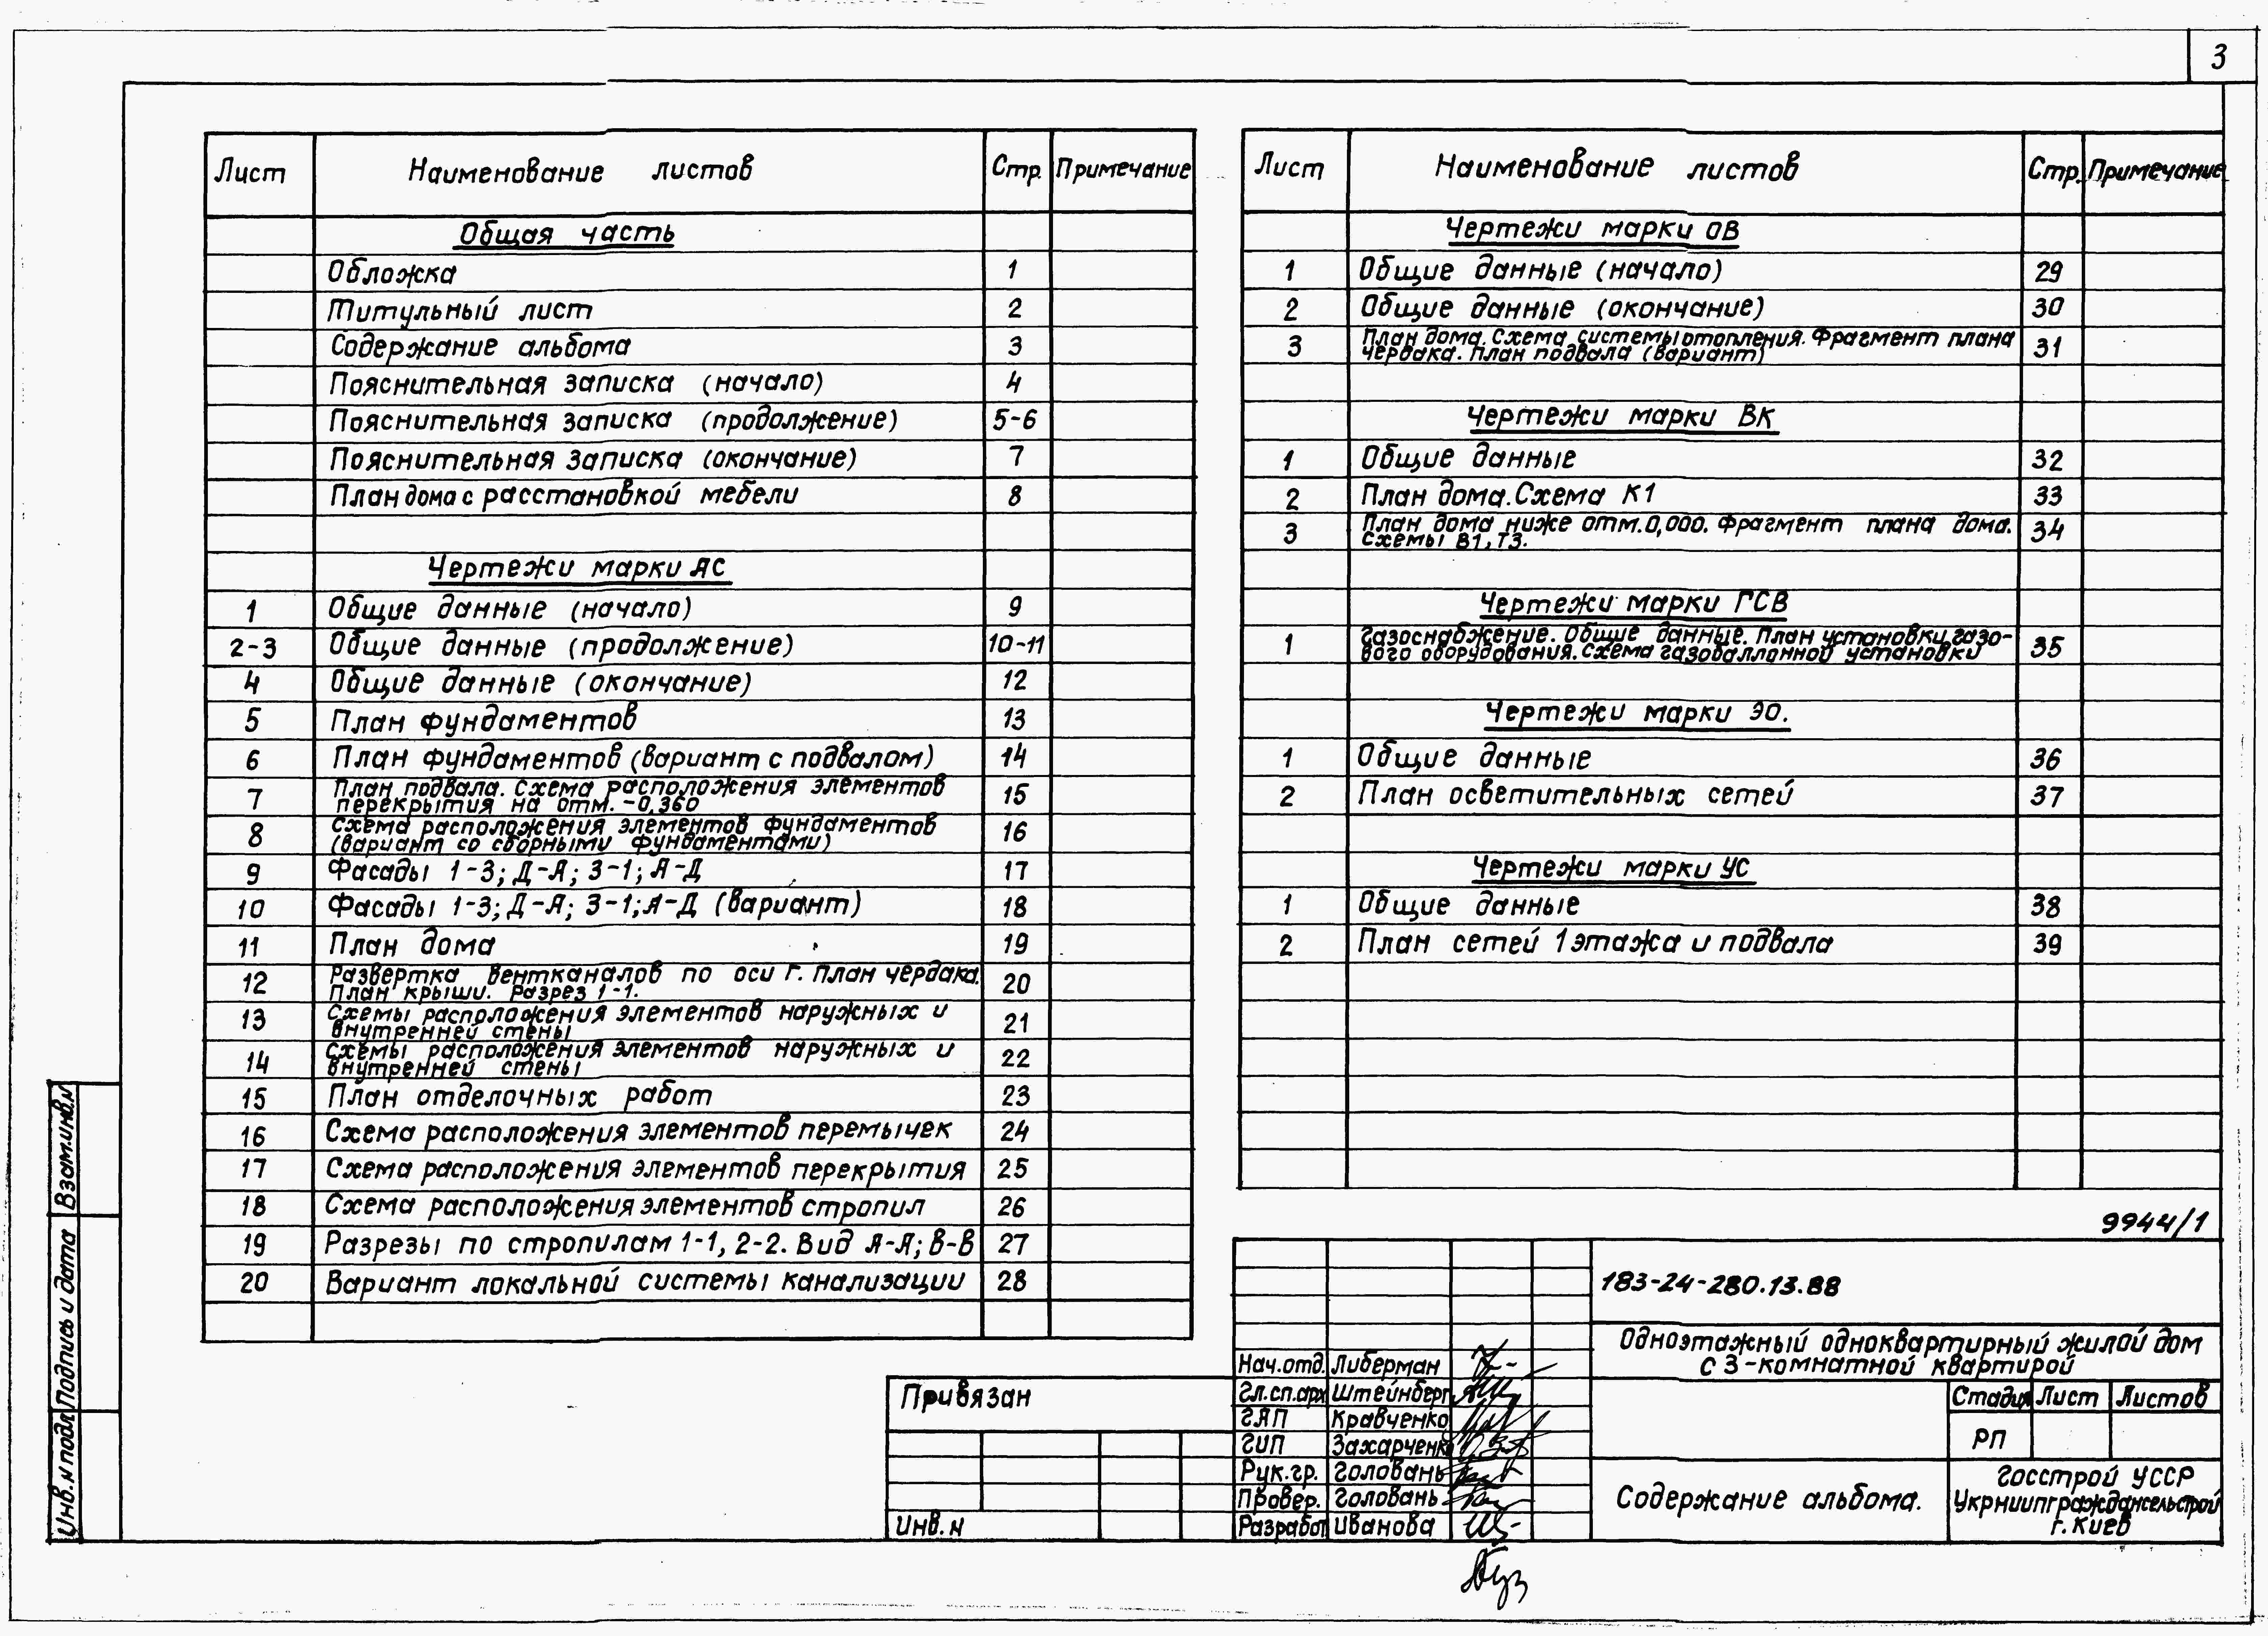 3
Лист Наименование листов Стр. Примечание
Общая часть
Обложка 1
Титульный лист 2
Содержание альбома 3
Пояснительная записка (начало) 4
Пояснительная записка (продолжение) 5-6
Пояснительная записка (окончание) 7
План дома с расстановкой мебели 8
Чертежи марки АС
1 Общие данные (начало) 9
2-3 Общие данные (продолжение) 10-11
4 Общие данные (окончание) 12
5 План фундаментов 13
6 План фундаментов (вариант с подвалом) 14
7 План подвала. Схема расположения элементов 15
перекрытия на отм. -0,360
8 Схема расположения элементов фундаментов 16
(вариант со сборными фундаментами)
9 Фасады 1-3; Д-А; 3-1; А-Д 17
10 Фасады 1-3; Д-А; 3-1; А-Д (вариант) 18
11 План дома 19
12 Развертка вентканалов по оси Г. План чердака. 20
План крыши. Разрез 1-1.
13 Схемы расположения элементов наружных и 21
внутренней стены
14 Схемы расположения элементов наружных и 22
внутренней стены
15 План отделочных работ 23
16 Схема расположения элементов перемычек 24
17 Схема расположения элементов перекрытия 25
18 Схема расположения элементов стропил 26
19 Разрезы по стропилам 1-1, 2-2. Вид А-А; В-В 27
20 Вариант локальной системы канализации 28
Лист Наименование листов Стр. Примечание
Чертежи марки ОВ
1 Общие данные (начало) 29
2 Общие данные (окончание) 30
3 План дома. Схема системы отопления. Фрагмент плана 31
чердака. План подвала (вариант)
Чертежи марки ВК
1 Общие данные 32
2 План дома. Схема К1 33
3 План дома ниже отм. 0,000. Фрагмент плана дома. 34
Схемы В1, Т3.
Чертежи марки ГСВ
1 Газоснабжение. Общие данные. План установки газо- 35
вого оборудования. Схема газобаллонной установки
Чертежи марки ЭО.
1 Общие данные 36
2 План осветительных сетей 37
Чертежи марки УС
1 Общие данные 38
2 План сетей 1 этажа и подвала 39
9944/1
183-24-280.13.88
Одноэтажный одноквартирный жилой дом
с 3-комнатной квартирой
Нач.отд. Либерман
Гл.сп.арх Штейнберг
ГАП Кравченко
ГИП Захарченко
Рук.гр. Головань
Провер. Головань
Разработ Иванова
Стадия Лист Листов
РП
Содержание альбома.
Госстрой УССР
Укрниипграждансельстрой
г. Киев
Привязан
Инв. N
Взам.инв.N
Подпись и дата
Инв. N подл